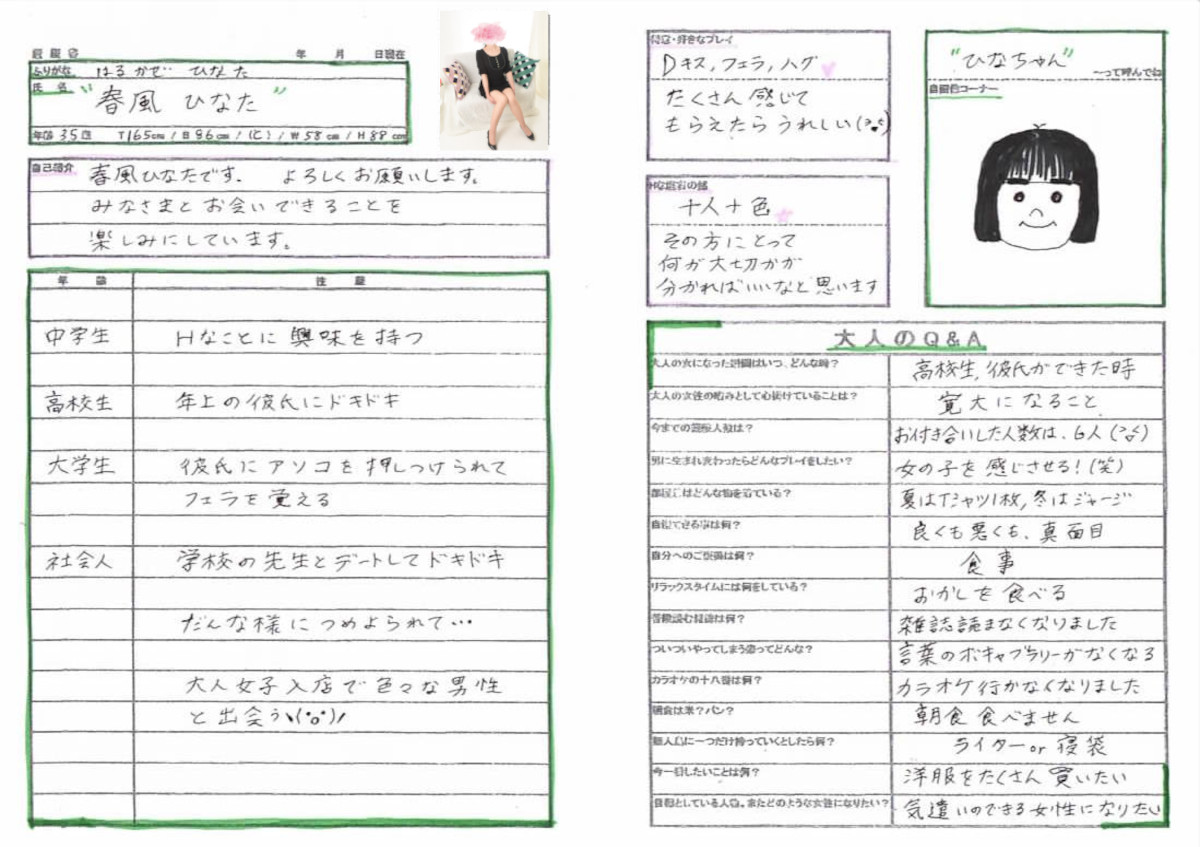 履歴書 年 月 日現在
ふりがな はるかぜ ひなた
氏名 "春風 ひなた"
年齢 35歳 T165cm / B86cm / (C) / W58cm / H88cm
自己紹介 春風ひなたです。 よろしくお願いします。
みなさまとお会いできることを
楽しみにしています。
年齢 性歴
中学生 Hなことに興味を持つ
高校生 年上の彼氏にドキドキ
大学生 彼氏にアソコを押しつけられて
フェラを覚える
社会人 学校の先生とデートしてドキドキ
だんな様につめよられて…
大人女子入店で色々な男性
と出会う
得意・好きなプレイ
Dキス,フェラ,ハグ
たくさん感じて
もらえたらうれしい
十人十色
その方にとって
何が大切かが
分かればいいなと思います
"ひなちゃん"
〜って呼んでね
自画像コーナー
大人のQ&A
大人の女になった瞬間はいつ、どんな時? 高校生,彼氏ができた時
大人の女性の嗜みとして心掛けていることは? 寛大になること
今までの経験人数は? お付き合いした人数は、6人
男に生まれ変わったらどんなプレイをしたい? 女の子を感じさせる!(笑)
部屋ではどんな物を着ている? 夏はTシャツ1枚,冬はジャージ
自慢できる事は何? 良くも悪くも、真面目
自分へのご褒美は何? 食事
リラックスタイムには何をしている? おかしを食べる
普段読む雑誌は何? 雑誌読まなくなりました
ついついやってしまう癖ってどんな? 言葉のボキャブラリーがなくなる
カラオケの十八番は何? カラオケ行かなくなりました
朝食は米?パン? 朝食食べません
無人島に一つだけ持っていくとしたら何? ライターor寝袋
今一番したいことは何? 洋服をたくさん買いたい
目標としている人は。またどのような女性になりたい? 気遣いのできる女性になりたい